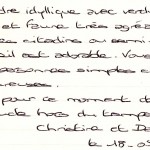 dre idyllique avec verd
et faune très agré
ée citadine ou semi-
eil est adorable. Vous
personnes simples e
euses.
pour ce moment de
ude hors du temps
Christine et De
le 18.05